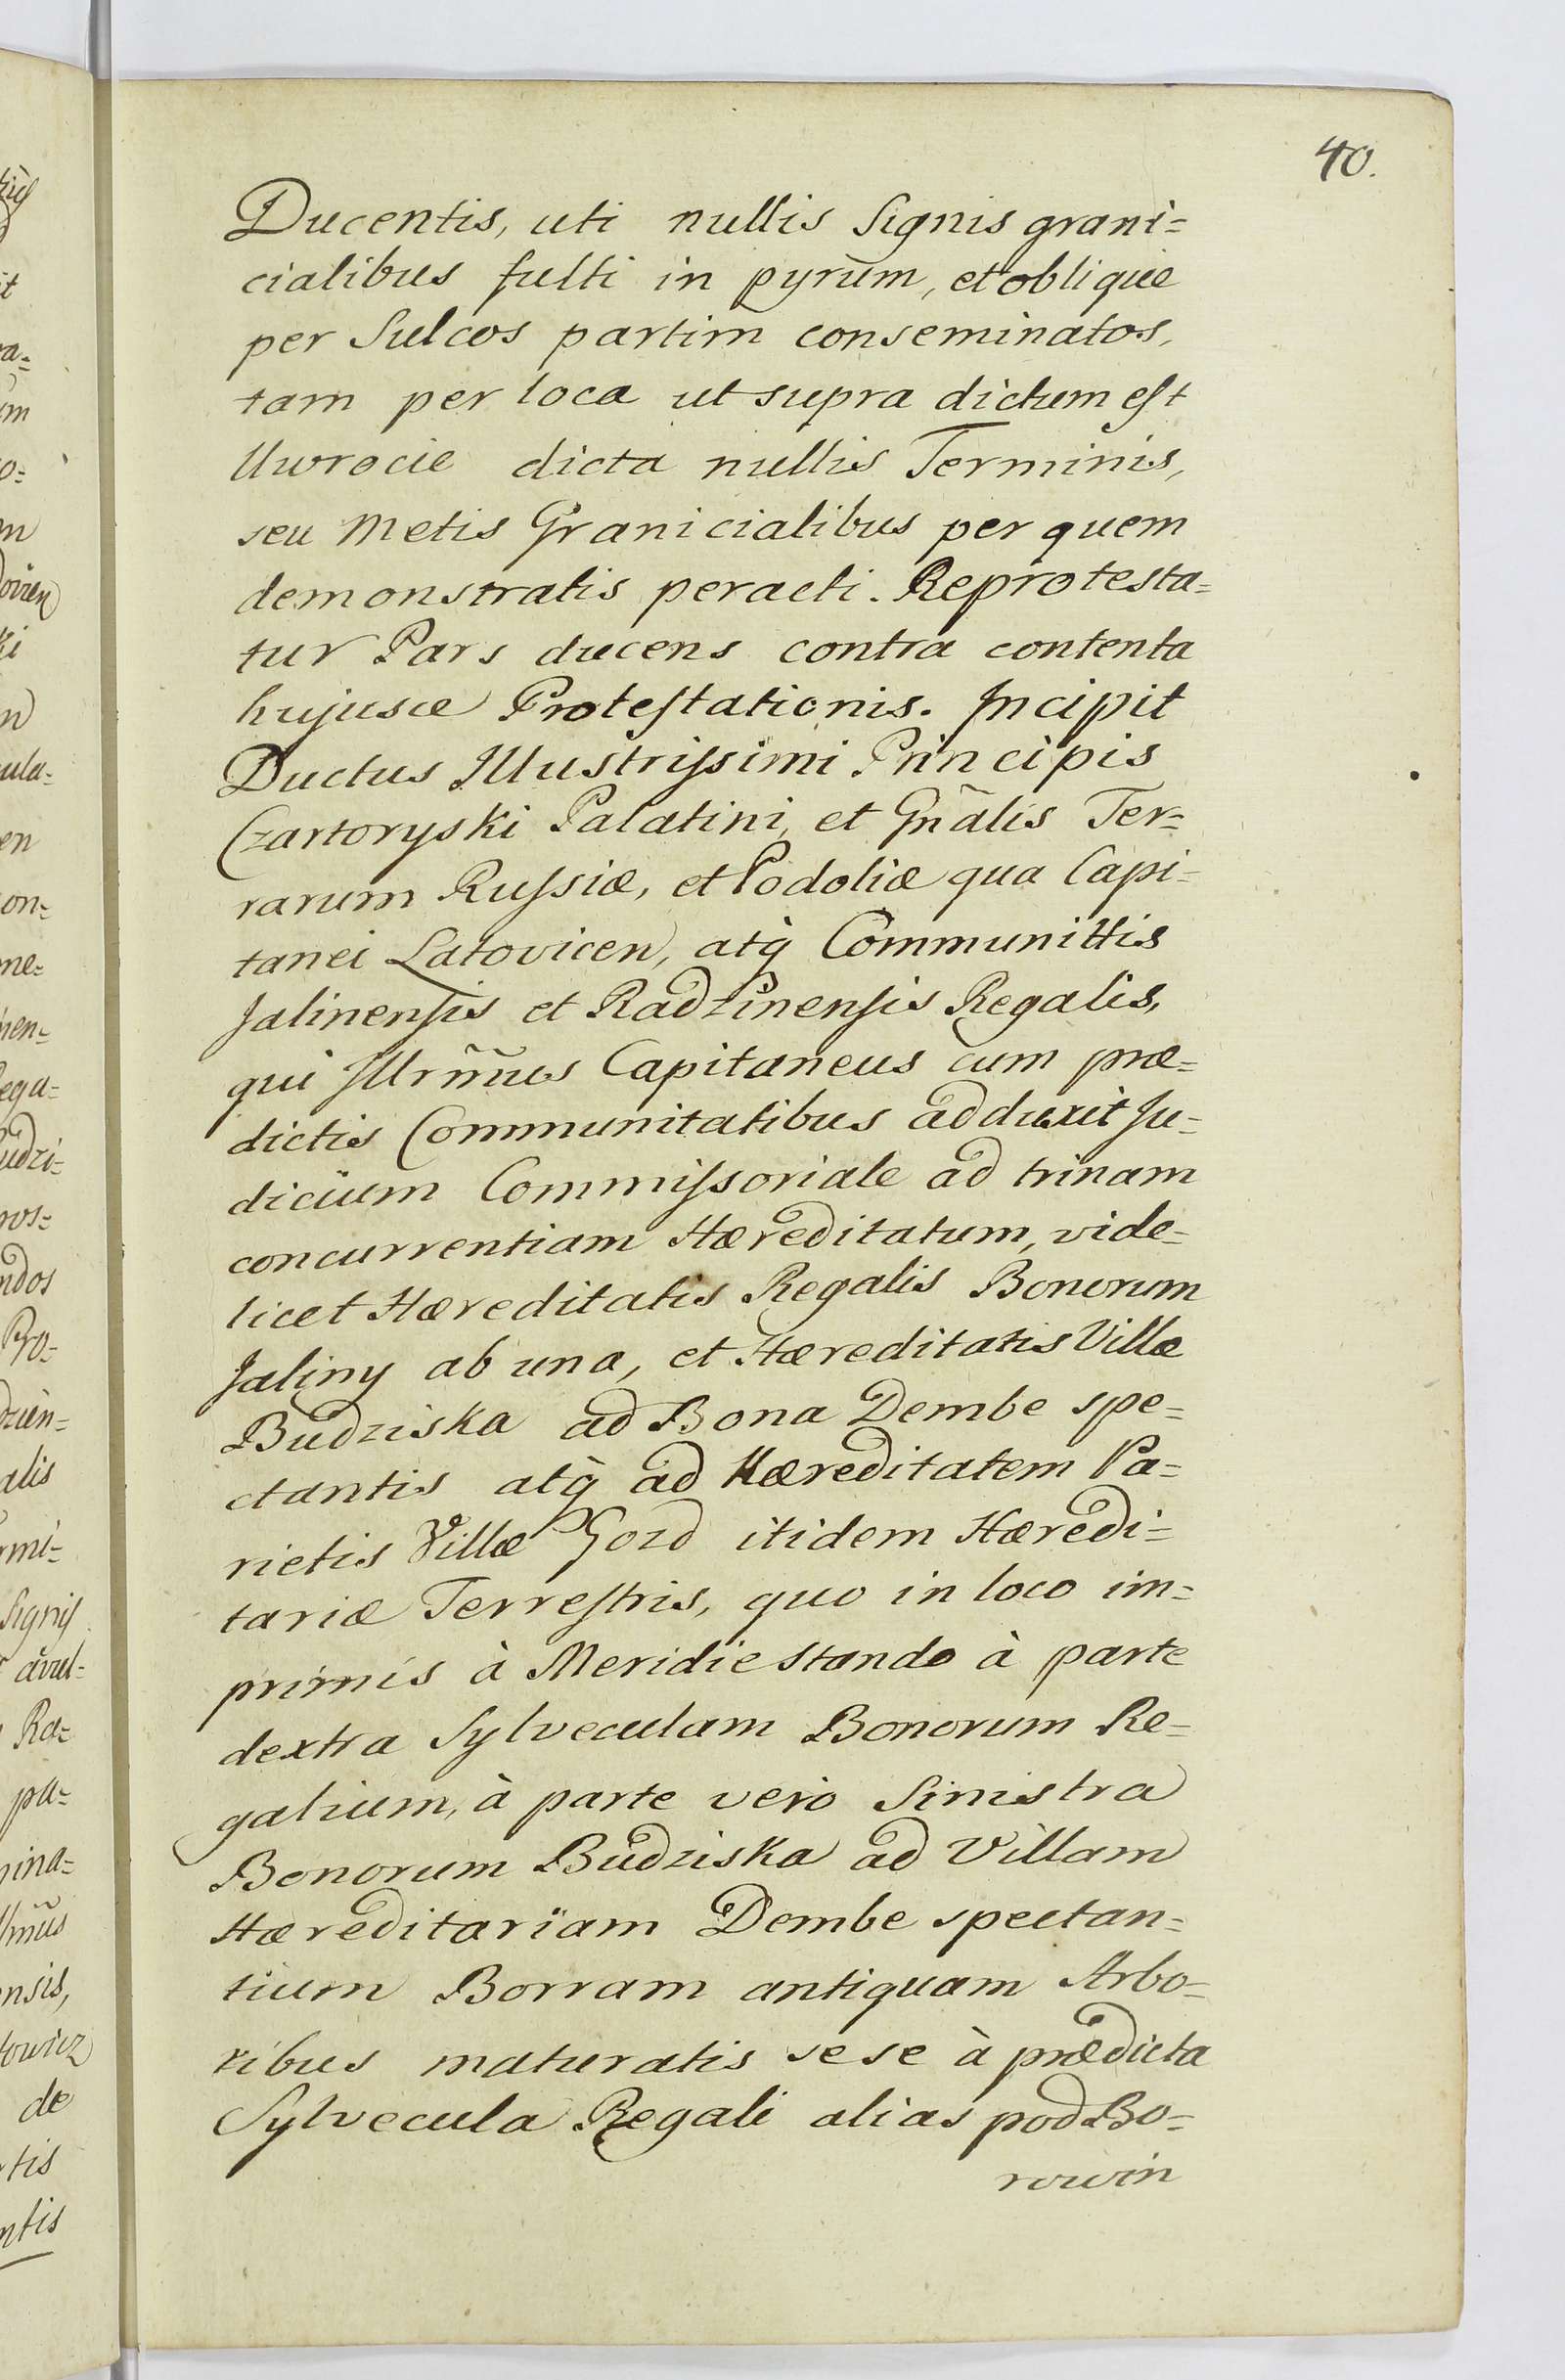 40.
Ducentis, uti nullis Signis grani=
cialibus fulti in pyrum, et oblique
per Sulcos partim conseminatos,
tam per loca ut supra dictum est
Uwrocie dicta nullis Terminis,
seu Metis Granicialibus per quem
demonstratis peracti. Reprotesta=
tur Pars ducens contra contenta
hujusce Protestationis. Incipit
Ductus Illustrissimi Principis
Czartoryski Palatini, et Gñalis Ter=
rarum Russiæ, et Podoliæ qua Capi=
tanei Latovicen, atq̀ Communittis
Jalinensis et Radzinensis Regalis,
qui Illrm̃us Capitaneus cum præ=
dictis Communitatibus adduxit Ju=
dicium Commissoriale ad trinam
concurrentiam Hæreditatum, vide=
licet Hæreditatis Regalis Bonorum
Jaliny ab una, et Hæreditatis Villæ
Budziska ad Bona Dembe spe=
ctantis atq̀ ad Hæreditatem Pa=
rietis Villæ Gozd itidem Hæredi=
tariæ Terrestris, quo in loco im=
primis à Meridie stando à parte
dextra Sylveculam Bonorum Re=
galium, à parte verò Sinistra
Bonorum Budziska ad Villam
Hæreditariam Dembe spectan=
tium Borram antiquam Arbo=
ribus maturatis sese à prædicta
Sylvecula Regali alias pod Bo=
rowin